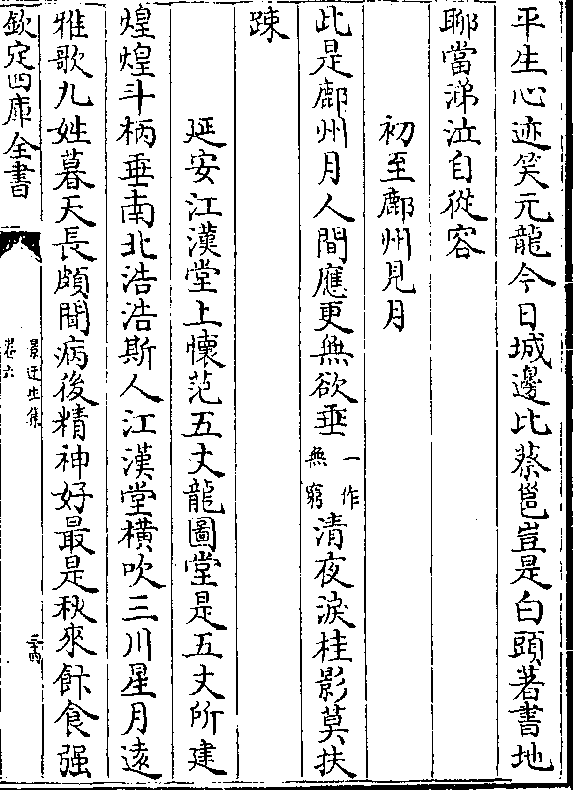 平生心迹笑元龍今日城邊比蔡邕豈是白頭著書地
聊當涕泣自從容
初至鄜州見月
此是鄜州月人間應更無欲垂一作無窮清夜淚桂影莫扶
踈
延安江漢堂上懷范五丈龍圖堂是五丈所建
煌煌斗柄垂南北浩浩斯人江漢堂橫吹三川星月遠
雅歌九姓暮天長頗聞病後精神好最是秋來飰食强
欽定四庫全書
景迂生集
卷六
三十四